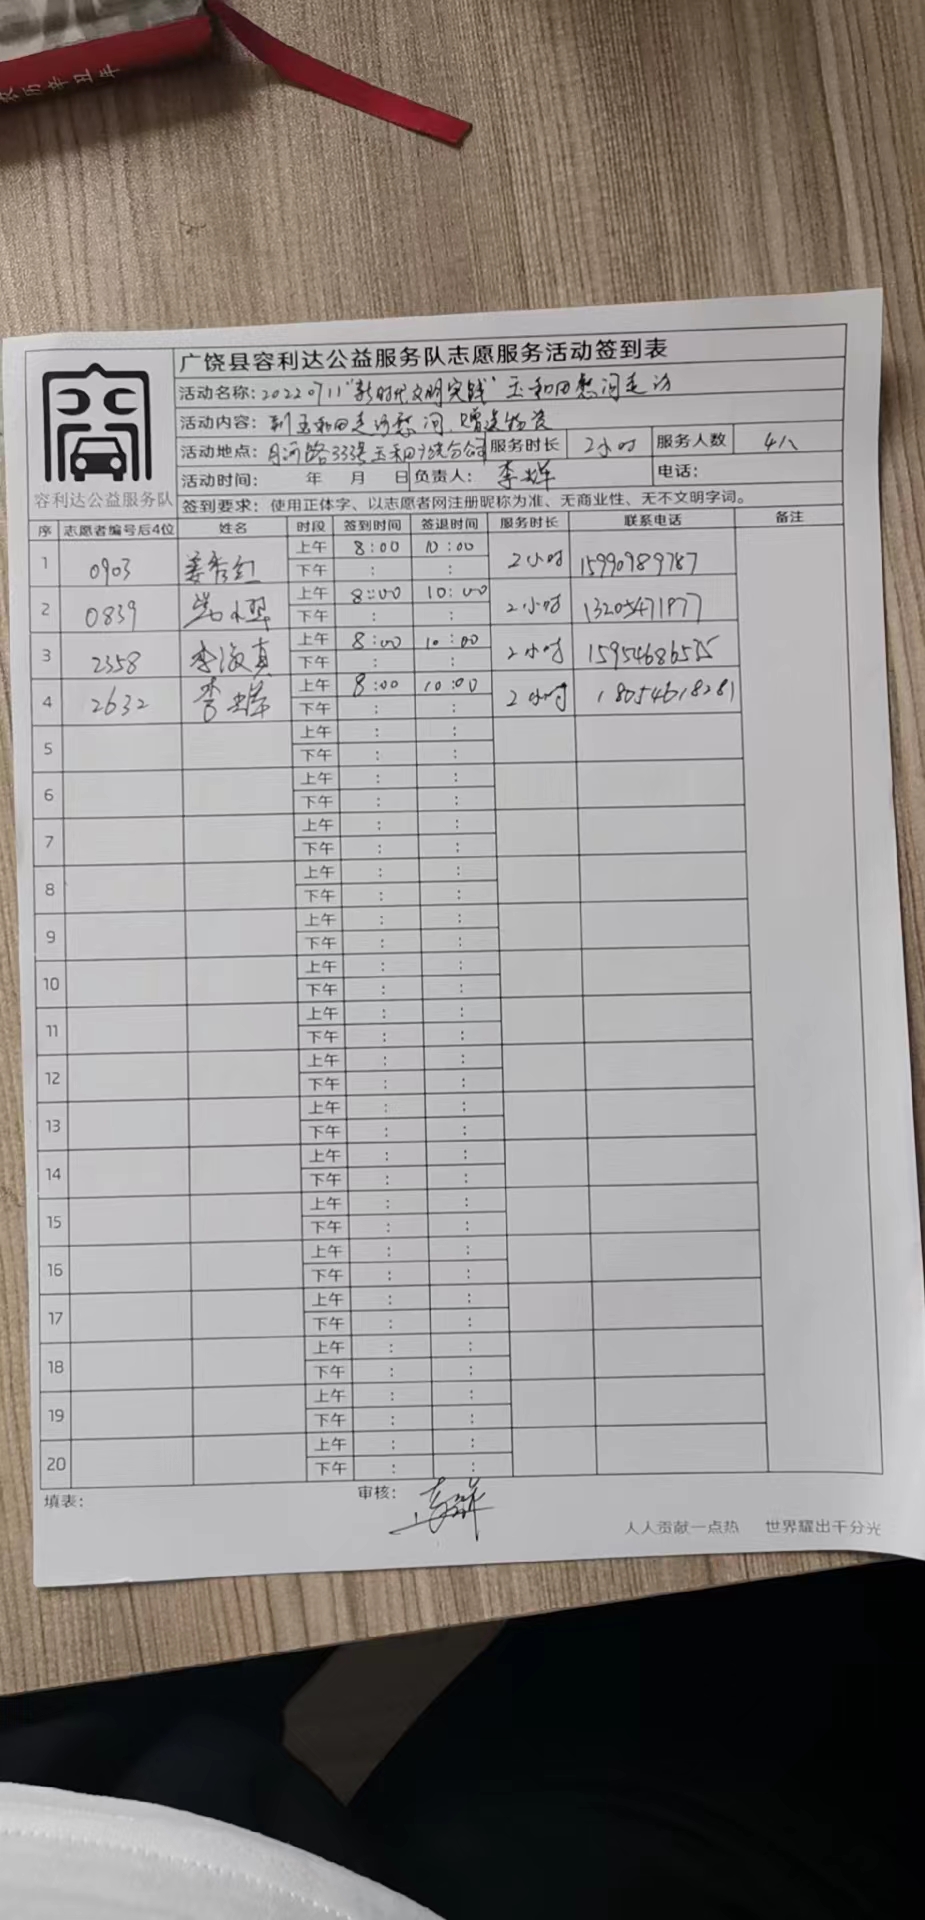 农历辛卯年
广饶县容利达公益服务队志愿服务活动签到表
活动名称：20220711"新时代文明实践"玉和田慰问走访
活动内容：到玉和田走访慰问、赠送物资
活动地点：月河路333号玉和田 服务时长 2小时 服务人数 4人
活动时间： 年 月 日 负责人：李 电话：
容利达公益服务队
签到要求：使用正体字、以志愿者网注册昵称为准、无商业性、无不文明字词。
序 志愿者编号后4位 姓名 时段 签到时间 签退时间 服务时长 联系电话 备注
1 0903 姜秀红 上午 8:00 10:00 2小时 15990989787
下午 : :
2 0839 上午 8:00 10:00 2小时 13205471877
下午 : :
3 2358 李海真 上午 8:00 10:00 2小时 15954686525
下午 : :
4 2632 李 上午 8:00 10:00 2小时 18054618281
下午 : :
5 上午 : :
下午 : :
6 上午 : :
下午 : :
7 上午 : :
下午 : :
8 上午 : :
下午 : :
9 上午 : :
下午 : :
10 上午 : :
下午 : :
11 上午 : :
下午 : :
12 上午 : :
下午 : :
13 上午 : :
下午 : :
14 上午 : :
下午 : :
15 上午 : :
下午 : :
16 上午 : :
下午 : :
17 上午 : :
下午 : :
18 上午 : :
下午 : :
19 上午 : :
下午 : :
20 上午 : :
下午 : :
填表： 审核：
人人贡献一点热 世界耀出千分光